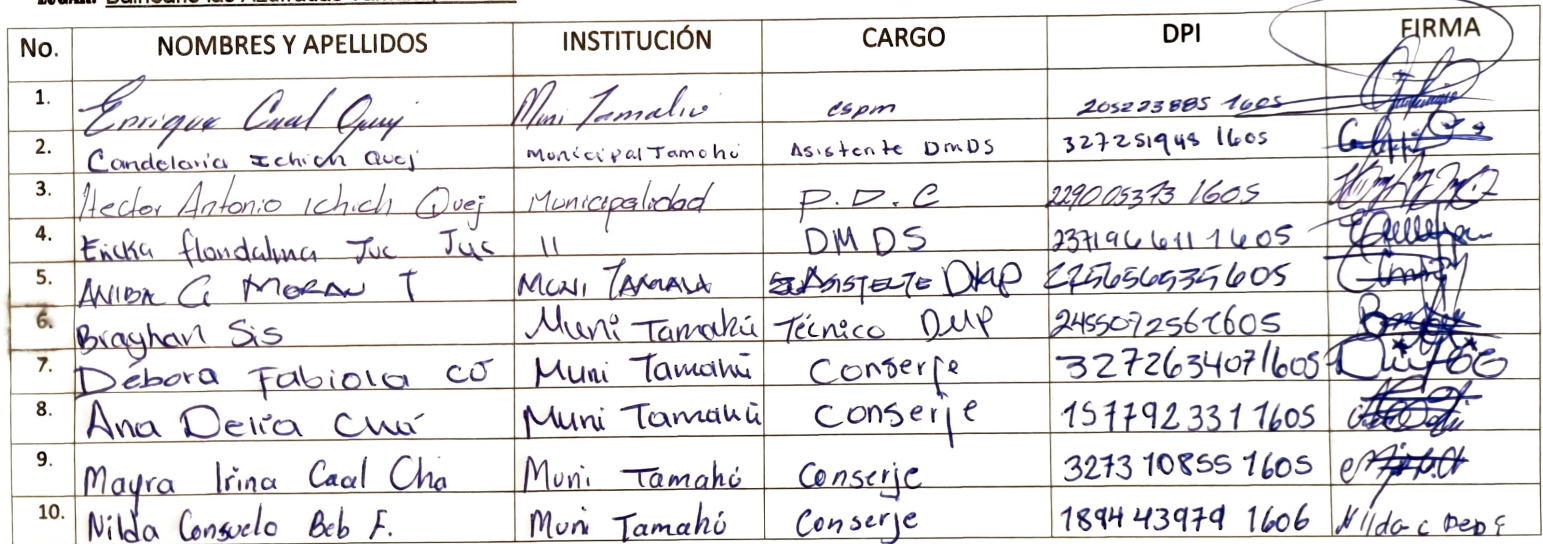 No. NOMBRES Y APELLIDOS INSTITUCIÓN CARGO DPI FIRMA
1. Enrique Caal Quej Muni Tamahú cspm 205223885 1605
2. Candelaria Ichich Quej Municipal Tamahú Asistente DMDS 327251948 1605
3. Hector Antonio Ichich Quej Municipalidad P.D.C 229005373 1605
4. Ericka flondalma Juc Juc 11 DMDS 237196611 1605
5. ANIBA G MORAN T MUNI TAMAHU ASISTENTE DMP 2256565351605
6. Brayhan Sis Muni Tamahú Técnico DMP 2455072561605
7. Débora Fabiola có Muni Tamahú Conserje 3272634071605
8. Ana Delia Chú Muni Tamahú Conserje 157792331 1605
9. Mayra Irina Caal Cha Muni Tamahú Conserje 327310855 1605
10. Nilda Consuelo Beb F. Muni Tamahú Conserje 189443979 1606 Nilda c Beb F